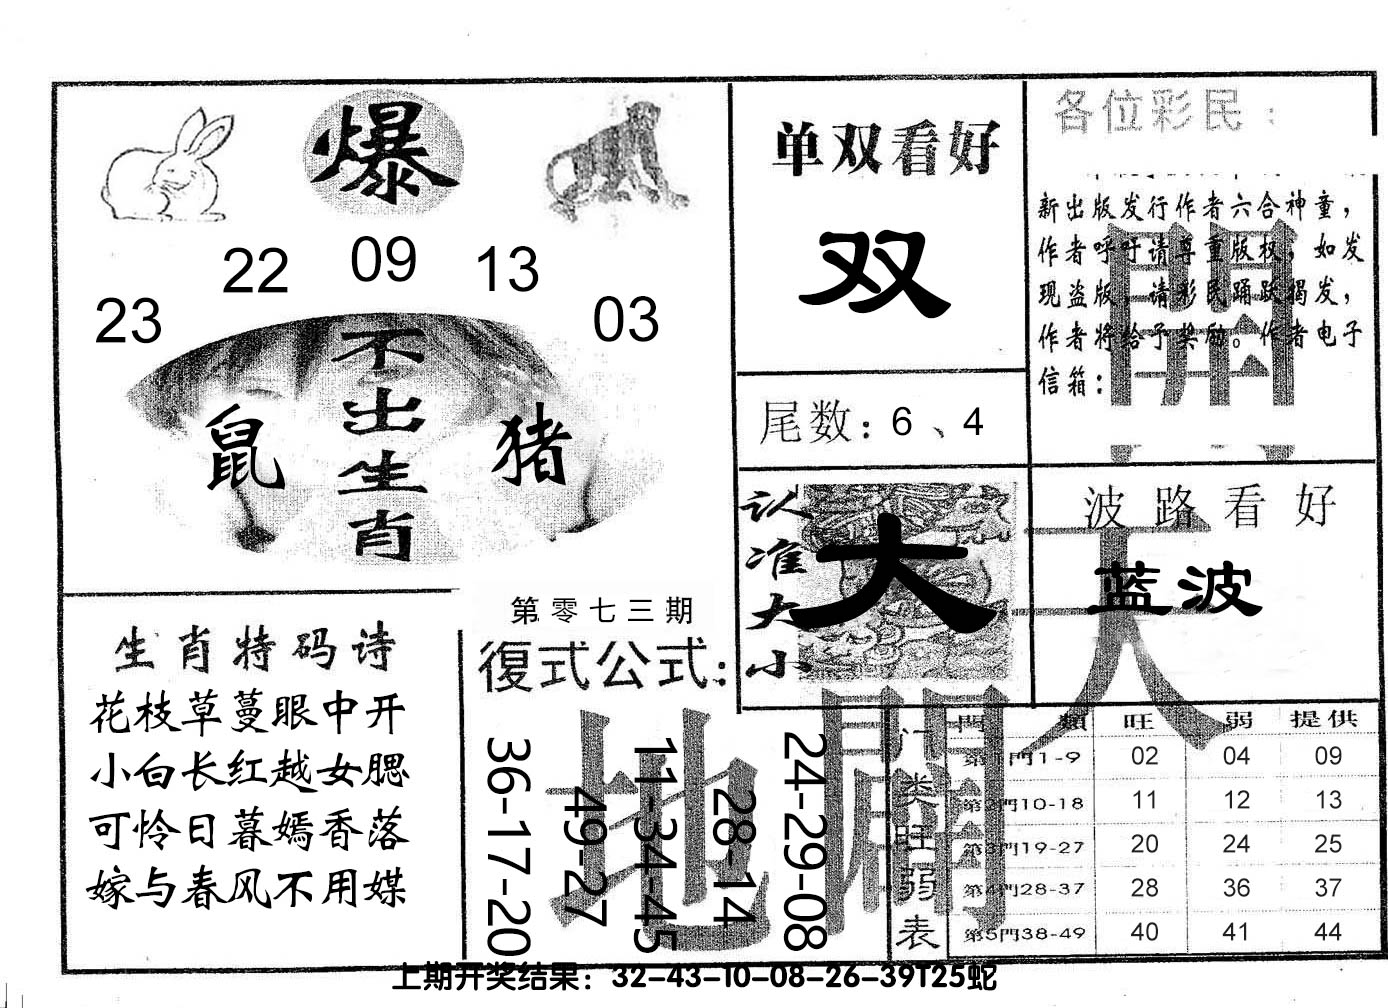 爆
23
22
09
13
03
不出生肖
鼠
猪
单双看好
双
尾数：6、4
各位彩民：
新出版发行作者六合神童，
作者呼吁请尊重版权，如发
现盗版，请彩民踊跃揭发，
作者将给予奖励。作者电子
信箱：
開
认准大小
大
波路看好
蓝波
天
生肖特码诗
花枝草蔓眼中开
小白长红越女腮
可怜日暮嫣香落
嫁与春风不用媒
第零七三期
復式公式：
36-17-20
49-27
11-34-45
28-14
24-29-08
地
門类旺弱表
門類 旺 弱 提供
第1門1-9 02 04 09
第2門10-18 11 12 13
第3門19-27 20 24 25
第4門28-37 28 36 37
第5門38-49 40 41 44
上期开奖结果：32-43-10-08-26-39T25蛇